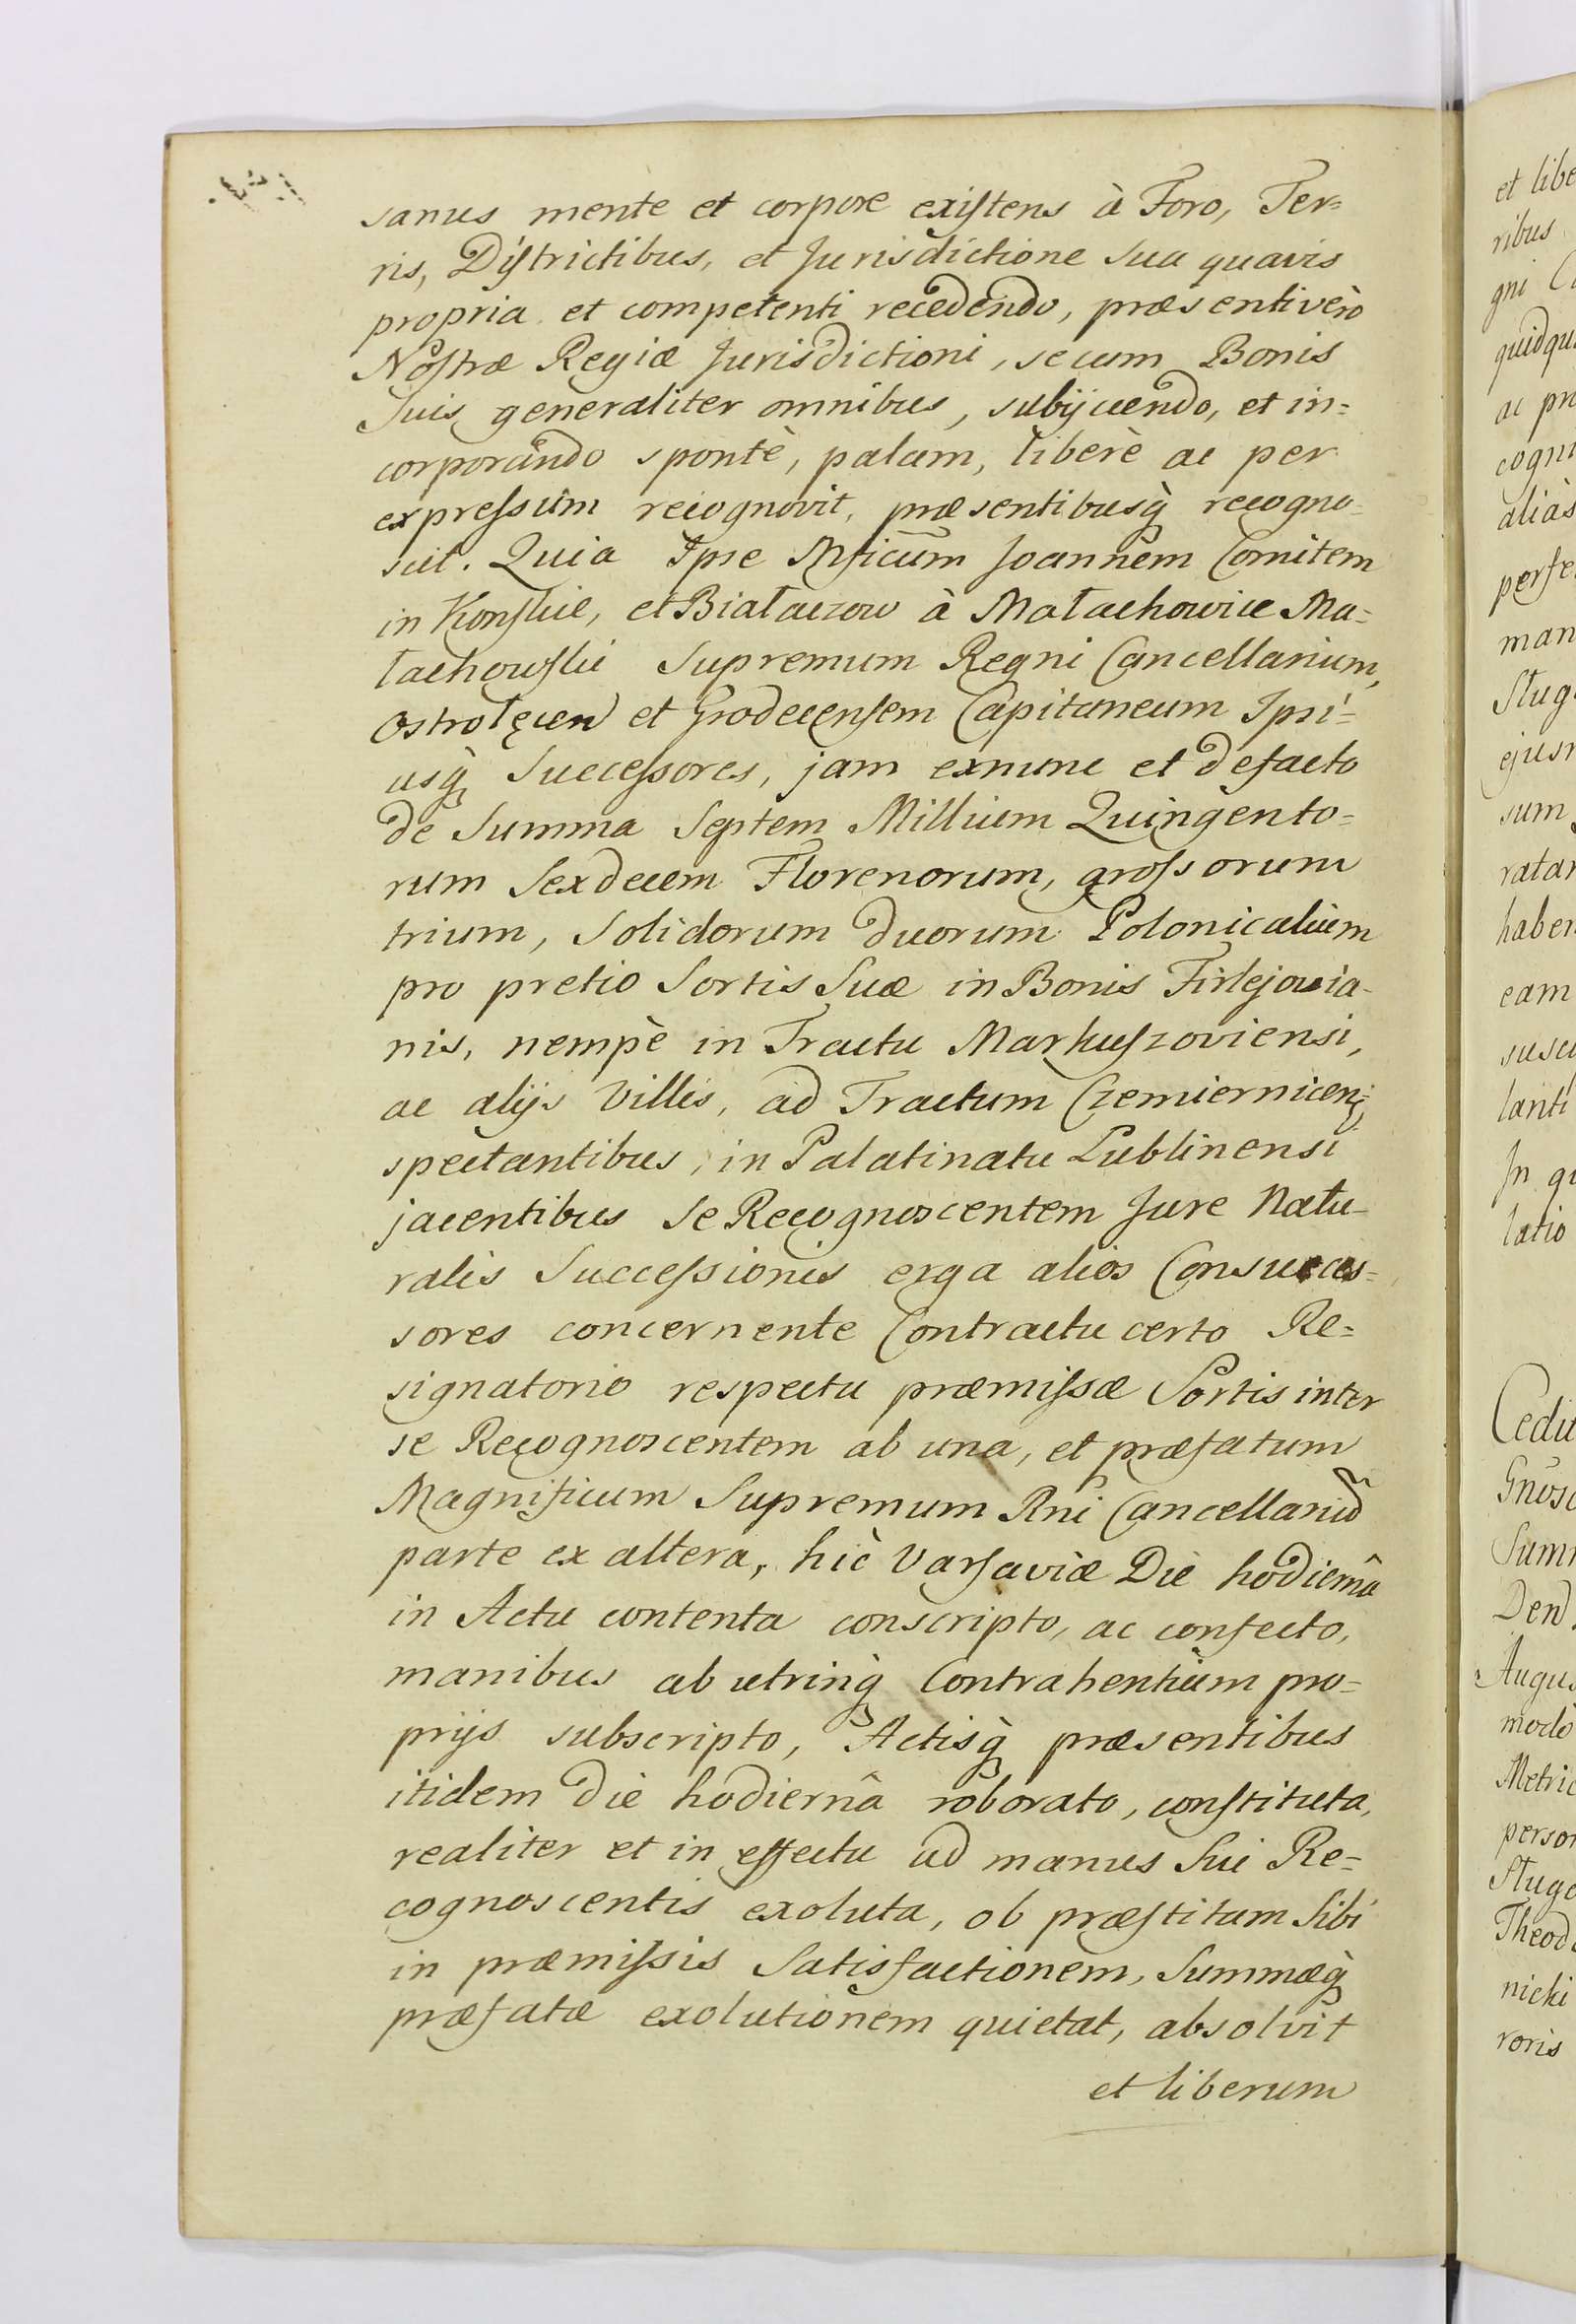 sanus mente et corpore existens à Foro, Ter=
ris, Districtibus, et Jurisdictione sua quavis
propria et competenti recedendo, præsenti verò
Nostræ Regiæ Jurisdictioni, se cum Bonis
Suis generaliter omnibus, subijciendo, et in=
corporando spontè, palam, liberè ac per
expressum recognovit, præsentibusq̀ recogno-
scit. Quia Ipse Mficum Joannem Comitem
in Konskie, et Białaczow à Małachowice Ma=
łachowski Supremum Regni Cancellarium,
Ostrołęcen et Grodecensem Capitaneum Ipsi=
usq̀ Successores, jam exnunc et defacto
de Summa Septem Millium Quingento=
rum Sexdecem Florenorum, grossorum
trium, Solidorum duorum Polonicalium
pro pretio Sortis Suæ in Bonis Firlejovia-
nis, nempè in Tractu Markuszoviensi,
ac alijs Villis, ad Tractum Czemiernicen;
spectantibus, in Palatinatu Lublinensi
jacentibus se Recognoscentem Jure Natu-
ralis Successionis erga alios Consucces=
sores concernente Contractu certo Re=
signatorio respectu præmissæ Sortis inter
se Recognoscentem ab una, et præfatum
Magnificum Supremum Rni Cancellariũ
parte ex altera, hìc Varsaviæ Die hodiernâ
in Actu contenta conscripto, ac confecto,
manibus ab utrinq̀ Contrahentium pro=
prijs subscripto, Actisq̀ præsentibus
itidem die hodiernâ roborato, constituta,
realiter et in effectu ad manus Sui Re=
cognoscentis exoluta, ob præstitam Sibi
in præmissis Satisfactionem, Summæq̀
præfatæ exolutionem quietat, absolvit
et liberum
et libe
ribus
gni
quidqu
ac
cogni
aliàs
perfe
man
Sług
ejus
sum
ratam
haben
eam
susci
lanti
In
latio
Cedit
Gnosc
Summ
Den
Augus
modò
Metric
person
Sługo
Theod
nicki
roris